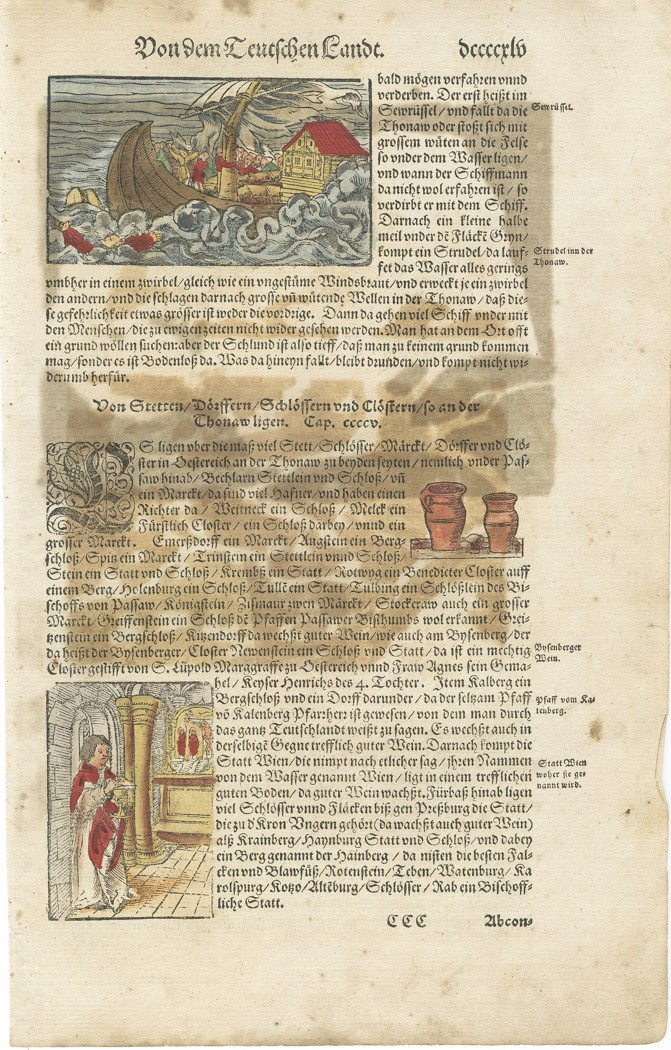 Von dem Teutschen Landt. dccccxlv
bald mögen verfahren vnnd
verderben. Der erst heißt im
Sewrüssel/vnd fallt da die
Sewrüssel.
Thonaw oder stoßt sich mit
grossem wüten an die Felse
so vnder dem Wasser ligen/
vnd wann der Schiffmann
da nicht wol erfahren ist/so
verdirbt er mit dem Schiff.
Darnach ein kleine halbe
meil vnder dē Fläckē Gryn/
kompt ein Strudel/da lauf-
Strudel inn der
Thonaw.
fet das Wasser alles gerings
vmbher in einem zwirbel/gleich wie ein vngestüme Windsbraut/vnd erweckt je ein zwirbel
den andern/vnd die schlagen darnach grosse vñ wütende Wellen in der Thonaw/daß die-
se gefehrlichkeit etwas grösser ist weder die vordrige. Dann da gehen viel Schiff vnder mit
den Menschen/die zu ewigen zeiten nicht wider gesehen werden. Man hat an dem Ort offt
ein grund wöllen suchen: aber der Schlund ist also tieff/daß man zu keinem grund kommen
mag/sonder es ist Bodenloß da. Was da hineyn fallt/bleibt drunden/vnd kompt nicht wi-
derumb herfür.
Von Stetten/Dörffern/Schlössern vnd Clöstern/so an der
Thonaw ligen. Cap. ccccv.
ES ligen vber die maß viel Stett/Schlösser/Märckt/Dörffer vnd Clö-
ster in Oestereich an der Thonaw zu beyden seyten/nemlich vnder Pas-
saw hinab/Bechlarn Stettlein vnd Schloß/vñ
ein Marckt/da sind viel Hafner/vnd haben einen
Richter da/Weitneck ein Schloß/Melck ein
Fürstlich Closter/ein Schloß darbey/vnnd ein
grosser Marckt. Emerßdorff ein Marckt/Augstein ein Berg-
schloß/Spitz ein Marckt/Trinstein ein Stettlein vnnd Schloß/
Stein ein Statt vnd Schloß/Krembß ein Statt/Rotwyg ein Benedicter Closter auff
einem Berg/Holenburg ein Schloß/Tulln ein Statt/Tulbing ein Schlößlein des Bi-
schoffs von Passaw/Königstein/Zisnaur zwen Märckt/Stockeraw auch ein grosser
Marckt/Greiffenstein ein Schloß dē Pfaffen Passawer Bisthumbs wol erkannt/Grei-
tzenstein ein Bergschloß/Kitzendorff da wechßt guter Wein/wie auch am Bysenberg/der
da heißt der Bysenberger/Closter Newenstein ein Schloß vnd Statt/da ist ein mechtig
Bysenberger
Wein.
Closter gestifft von S. Lüpold Marggraffe zu Oestereich vnnd Fraw Agnes sein Gema-
hel/Keyser Henrichs des 4. Tochter. Item Kalberg ein
Bergschloß vnd ein Dorff darunder/da der seltzam Pfaff
Pfaff vom Ka-
lenberg.
vō Kalenberg Pfarrherr ist gewesen/von dem man durch
das gantz Teutschland weißt zu sagen. Es wechßt auch in
derselbigē Gegne trefflich guter Wein. Darnach kompt die
Statt Wien/die nimpt nach etlicher sag/jhren Nammen
Statt Wien
woher sie ge-
nannt wird.
von dem Wasser genannt Wien/ligt in einem trefflichen
guten Boden/da guter Wein wachßt. Fürbaß hinab ligen
viel Schlösser vnnd Fläcken biß gen Preßburg die Statt/
die zu d' Kron Vngern gehört (da wachßt auch guter Wein)
alß Krainberg/Haynburg Statt vnd Schloß/vnd dabey
ein Berg genannt der Hainberg/da nisten die besten Fal-
cken vnd Blawfüß/Rotenstein/Teben/Watenburg/Ka
rolspurg/Kotzo/Altēburg/Schlösser/Rab ein Bischoff-
liche Statt.
CCC Abcon-